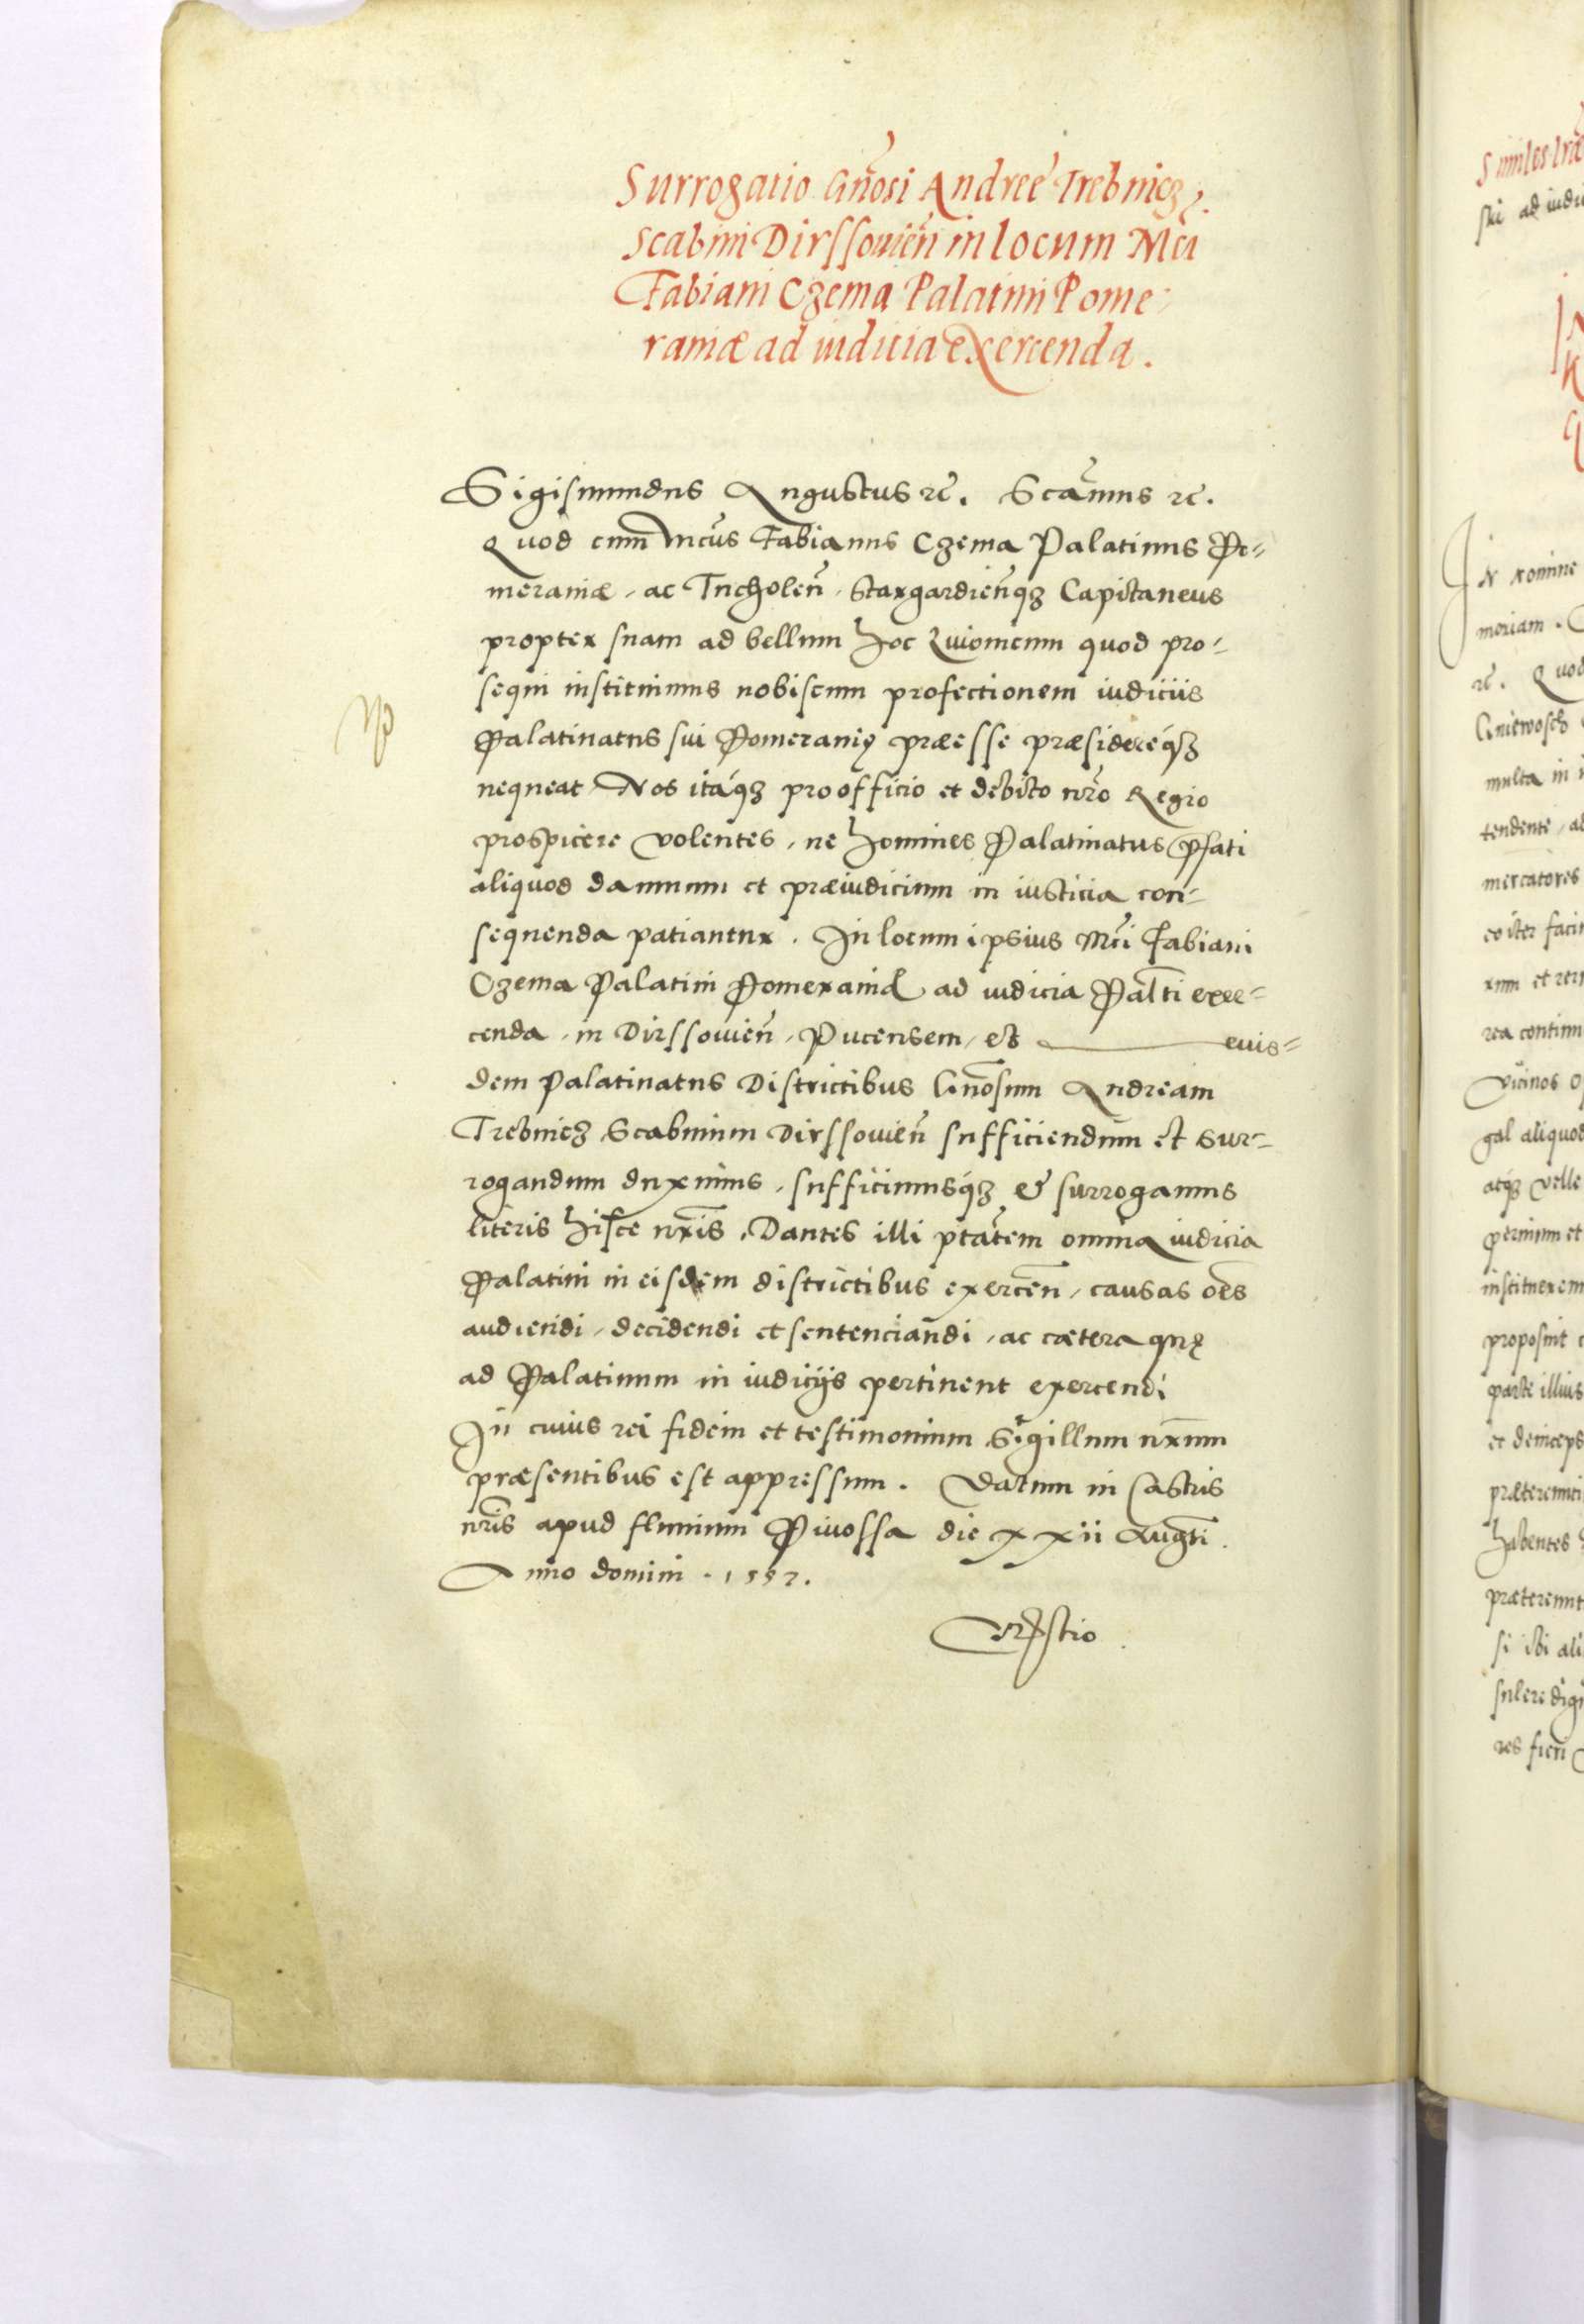 Surrogatio Gn̄osi Andreę Trebnicz
Scabini Dirssouien̄ in locum Mci
Fabiani Czema Palatini Pome-
raniæ ad iudicia exercenda.
Sigismundus Augustus ꝛc̄. Scām̄us ꝛc̄.
Quod cum Mcūs Fabianus Czema Palatinus Po=
meraniæ, ac Tucholen̄, Stargardien̄qꝫ Capitaneus
propter suam ad bellum hoc Liuonicum quod pro-
sequi instituimus nobiscum profectionem iudiciis
Palatinatus sui Pomeranię præesse præsidereqꝫ
nequeat Nos itaqꝫ pro officio et debito nr̄o Regio
prospicere volentes, ne homines Palatinatus p̄fati
aliquod damnum et præiudicium in iusticia con-
sequenda patiantur. In locum ipsius Mci Fabiani
Czema Palatini Pomeraniæ ad iudicia Palti exer=
cenda, in Dirssouien̄, Pucensem, et ——— euis=
dem Palatinatus Districtibus Gn̄osum Andream
Trebnicz Scabinum Dirssouien̄ sufficiendum et sur-
rogandum duximus, sufficimusqꝫ et surrogamus
literis hisce nr̄is, Dantes illi ptātem omnia iudicia
Palatini in eisdem districtibus exercen̄, causas oēs
audiendi, decidendi et sentenciandi, ac cætera quę
ad Palatinum in iudicijs pertinent exercendi
In cuius rei fidem et testimonium Sigillum nr̄um
præsentibus est appressum. Datum in Castris
nr̄is apud fluuium Piuossa die xxii Augti.
Anno domini . 1557.
Similes
ski ad iudi
IN nomine
moriam.
ꝛc̄. Quod
Gniewosch
multa in
tendente, a
mercatores
eo iter faci
rum et rer
rea contin
vicinos
gal aliquod
atqꝫ velle
instituerem
proposuit
parte illius
et deinceps
habentes
prætereunt
si ibi ali